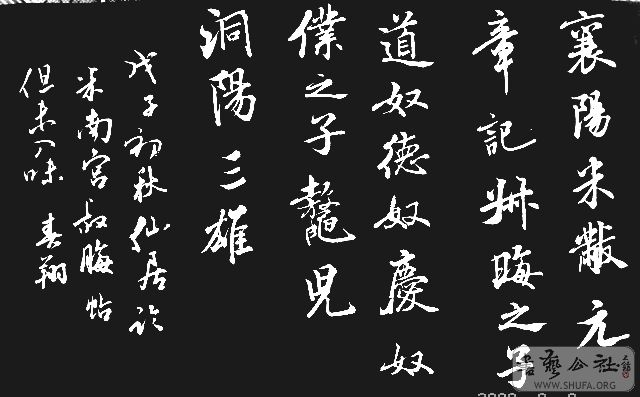 襄陽米黻元
章記叔晦之子
道奴德奴慶奴
僕之子鼇兒
洞陽三雄
戊子初秋仙居
米南宫叔晦帖
但未入味 春翔
書藝公社
WWW.SHUFA.ORG